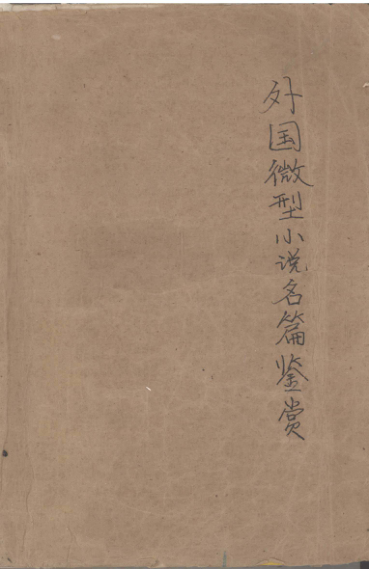 外国微型小说名篇鉴赏